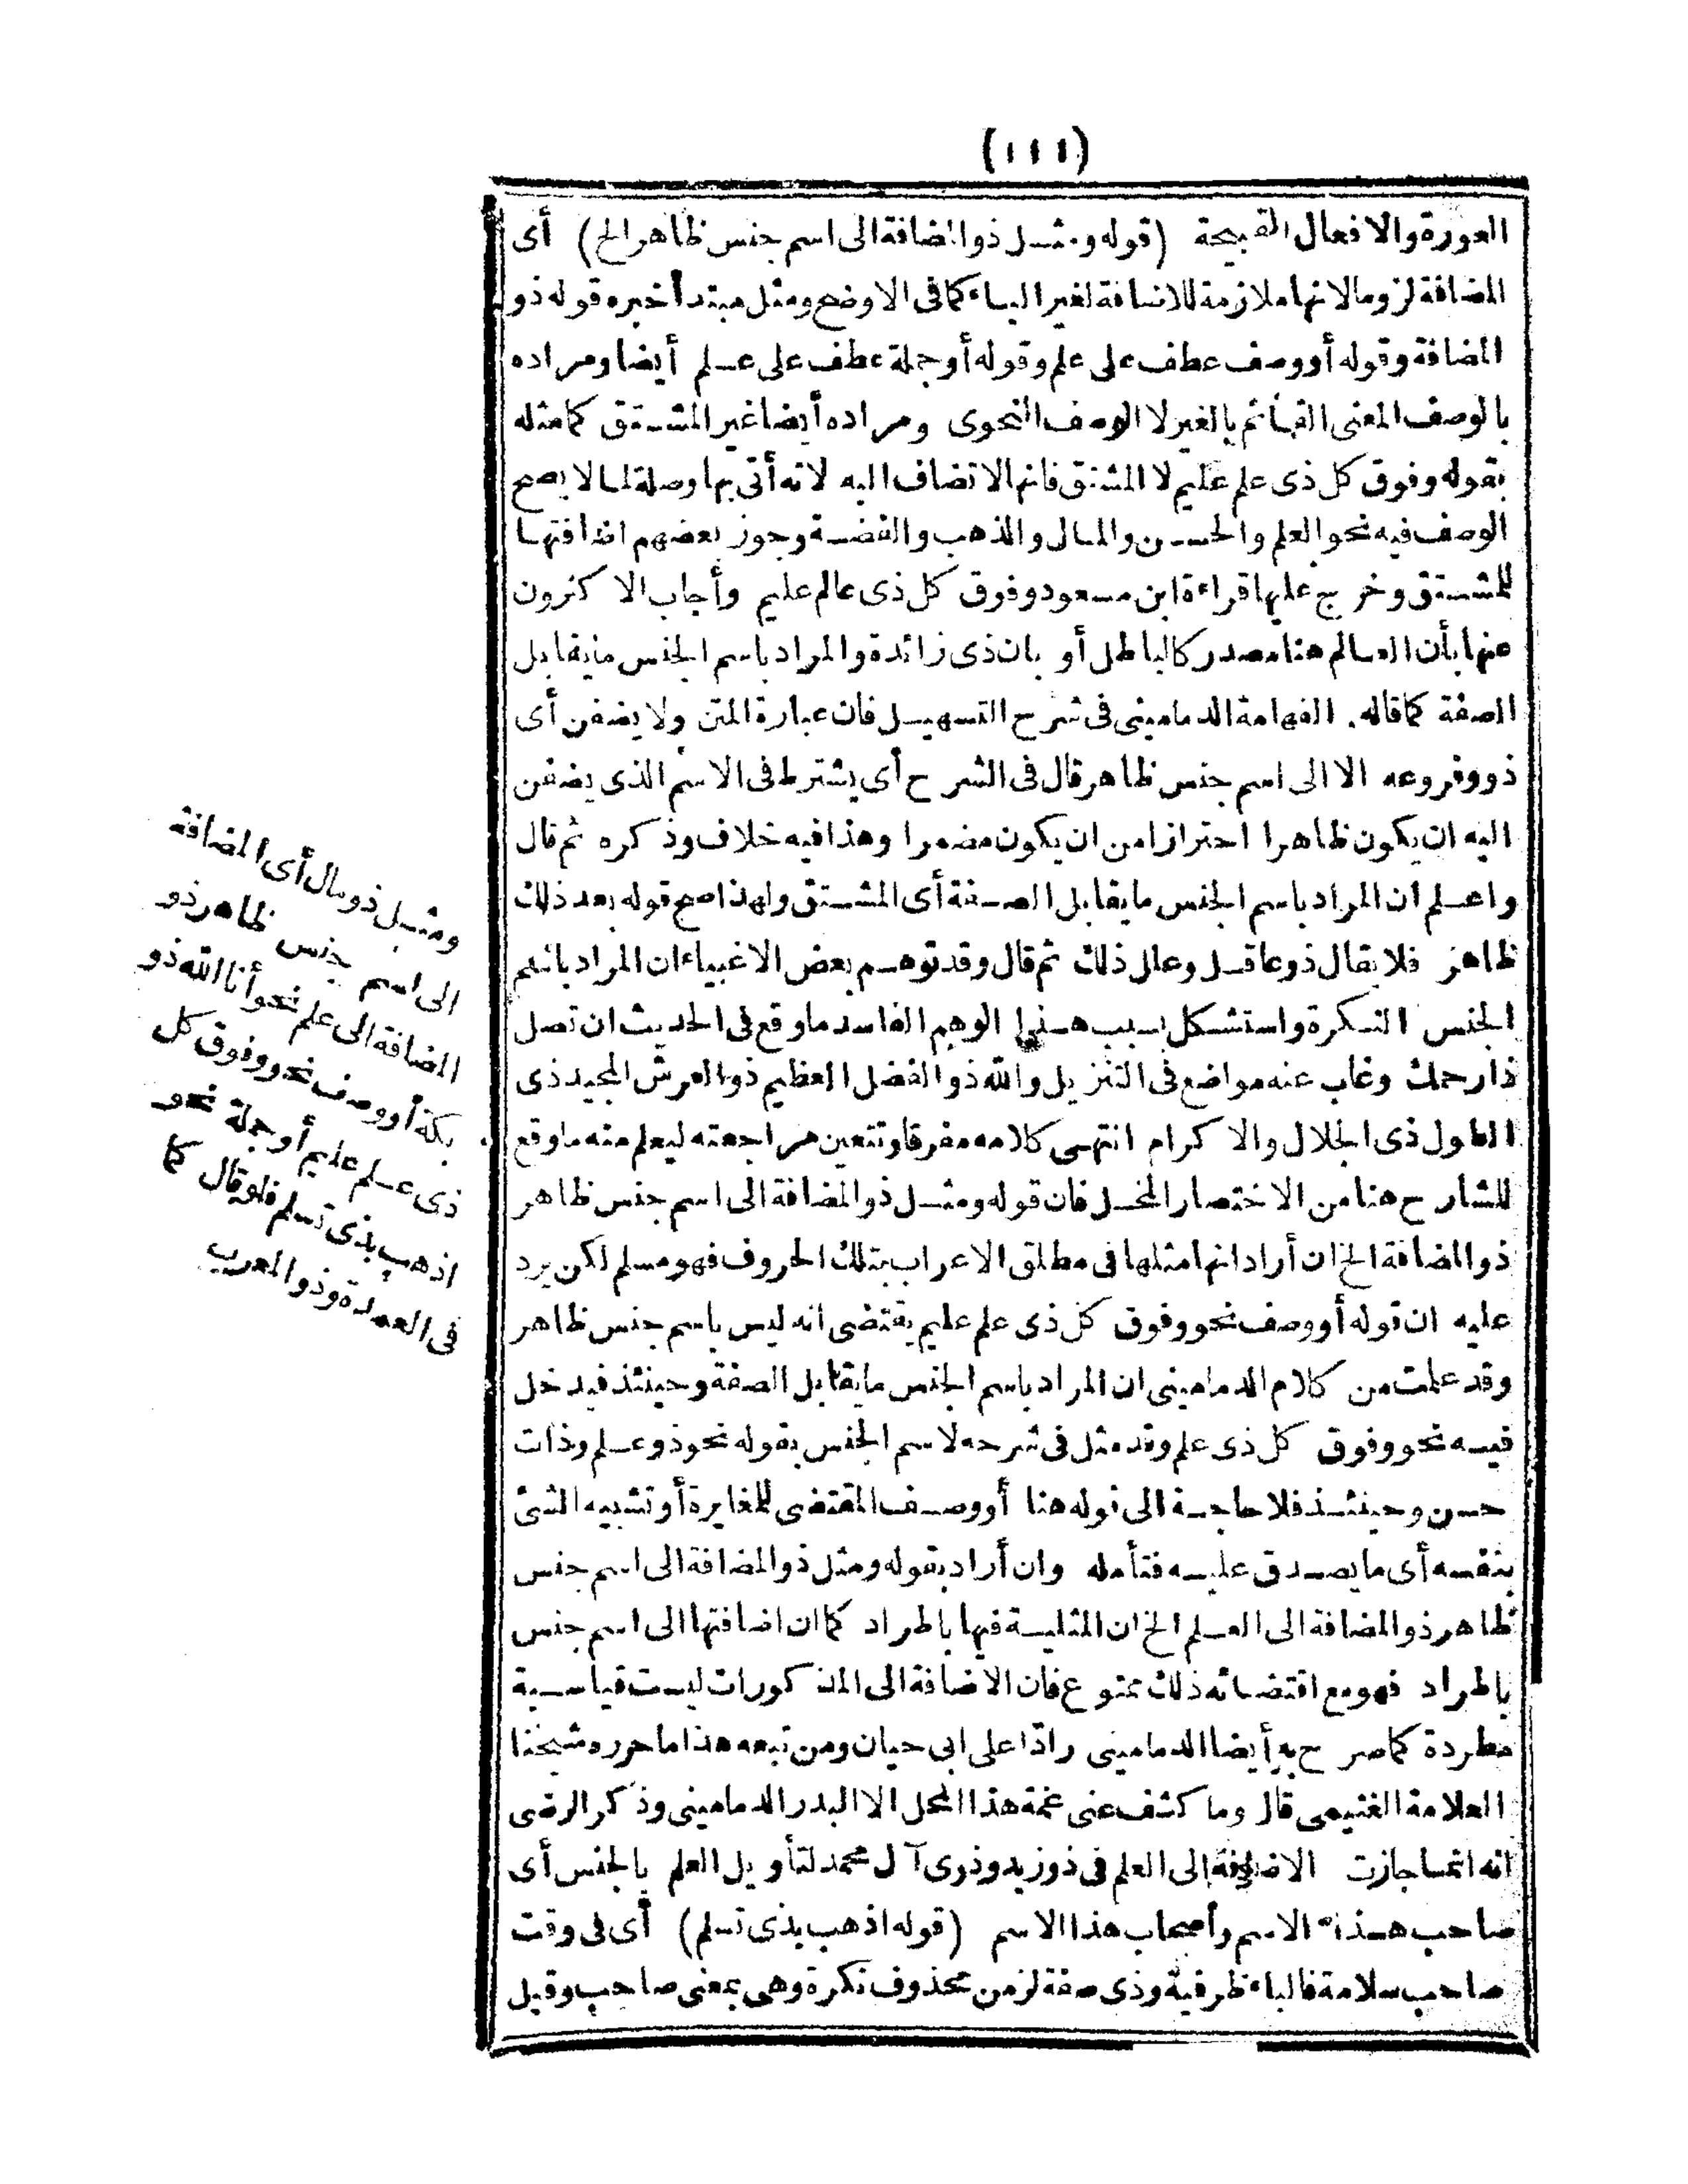 (١١١)
العورة والافعال القبيحة (قوله ومثل ذو المضافة الى اسم جنس ظاهر الخ) أى
المضافة لزوما لانها ملازمة للاضافة لغير الياء كما فى الاوضح ومثل مبتدأ خبره قوله ذو
المضافة وقوله أو وصف عطف على علم وقوله أو جملة عطف على علم أيضا ومراده
بالوصف المعنى القائم بالغير لا الوصف النحوى ومراده أيضا غير المشتق كما مثله
بقوله وفوق كل ذى علم عليم لا المشتق فانها لا تضاف اليه لانه أتى بها وصلة لما لا يصح
الوصف فيه نحو العلم والحسن والمال والذهب والفضة وجوز بعضهم اضافتها
للمشتق وخرج عليها قراءة ابن مسعود وفوق كل ذى عالم عليم وأجاب الا كثرون
عنها بأن العالم هنا مصدر كالباطل أو بان ذى زائدة والمراد باسم الجنس ما يقابل
الصفة كما قاله الفهامة الدمامينى فى شرح التسهيل فان عبارة المتن ولا يضفن أى
ذو وفروعه الا الى اسم جنس ظاهر قال فى الشرح أى يشترط فى الاسم الذى يضفن
اليه ان يكون ظاهرا احترازا من ان يكون مضمرا وهذا فيه خلاف وذكره ثم قال
واعلم ان المراد باسم الجنس ما يقابل الصفة أى المشتق ولهذا صح قوله بعد ذلك
ظاهر فلا يقال ذو عاقل وعلل ذلك ثم قال وقد توهم بعض الاغبياء ان المراد باسم
الجنس النكرة واستشكل بسبب هذا الوهم الفاسد ما وقع فى الحديث ان تصل
ذا رحمك وغاب عنه مواضع فى التنزيل والله ذو الفضل العظيم ذو العرش المجيد ذى
الطول ذى الجلال والا كرام انتهى كلامه مفرقا وتتعين مراجعته ليعلم منه ما وقع
للشارح هنا من الاختصار المخل فان قوله ومثل ذو المضافة الى اسم جنس ظاهر
ذو المضافة الخ ان أراد انها مثلها فى مطلق الاعراب بتلك الحروف فهو مسلم لكن يرد
عليه ان قوله أو وصف نحو وفوق كل ذى علم عليم يقتضى انه ليس باسم جنس ظاهر
وقد علمت من كلام الدمامينى ان المراد باسم الجنس ما يقابل الصفة وحينئذ فيدخل
فيه نحو وفوق كل ذى علم وقد مثل فى شرحه لاسم الجنس بقوله نحو ذو علم وذات
حسن وحينئذ فلا حاجة الى قوله هنا أو وصف المقتضى للمغايرة أو تشبيه الشئ
بنفسه أى ما يصدق عليه فتأمله وان أراد بقوله ومثل ذو المضافة الى اسم جنس
ظاهر ذو المضافة الى العلم الخ ان المثلية فيها باطراد كما ان اضافتها الى اسم جنس
باطراد فهو مع اقتضائه ذلك ممنوع فان الاضافة الى المذكورات ليست قياسية
مطردة كما صرح به أيضا الدمامينى رادّا على ابى حيان ومن تبعه هذا ما حرره شيخنا
العلامة الغنيمى قال وما كشف عنى غمة هذا المحل الا البدر الدمامينى وذكر الرضى
انه انما جازت الاضافة الى العلم فى ذو زيد وذوى آل محمد لتأويل العلم بالجنس أى
صاحب هذا الاسم وأصحاب هذا الاسم (قوله اذهب بذى تسلم) أى فى وقت
صاحب سلامة فالباء ظرفية وذى صفة لزمن محذوف نكرة وهى بمعنى صاحب وقيل
ومثل ذو مال أى المضافة
الى اسم جنس ظاهر ذو
المضافة الى علم نحو أنا الله ذو
بكة أو وصف نحو وفوق كل
ذى علم عليم أو جملة نحو
اذهب بذى تسلم فلو قال كما
فى العمدة وذو المعرب